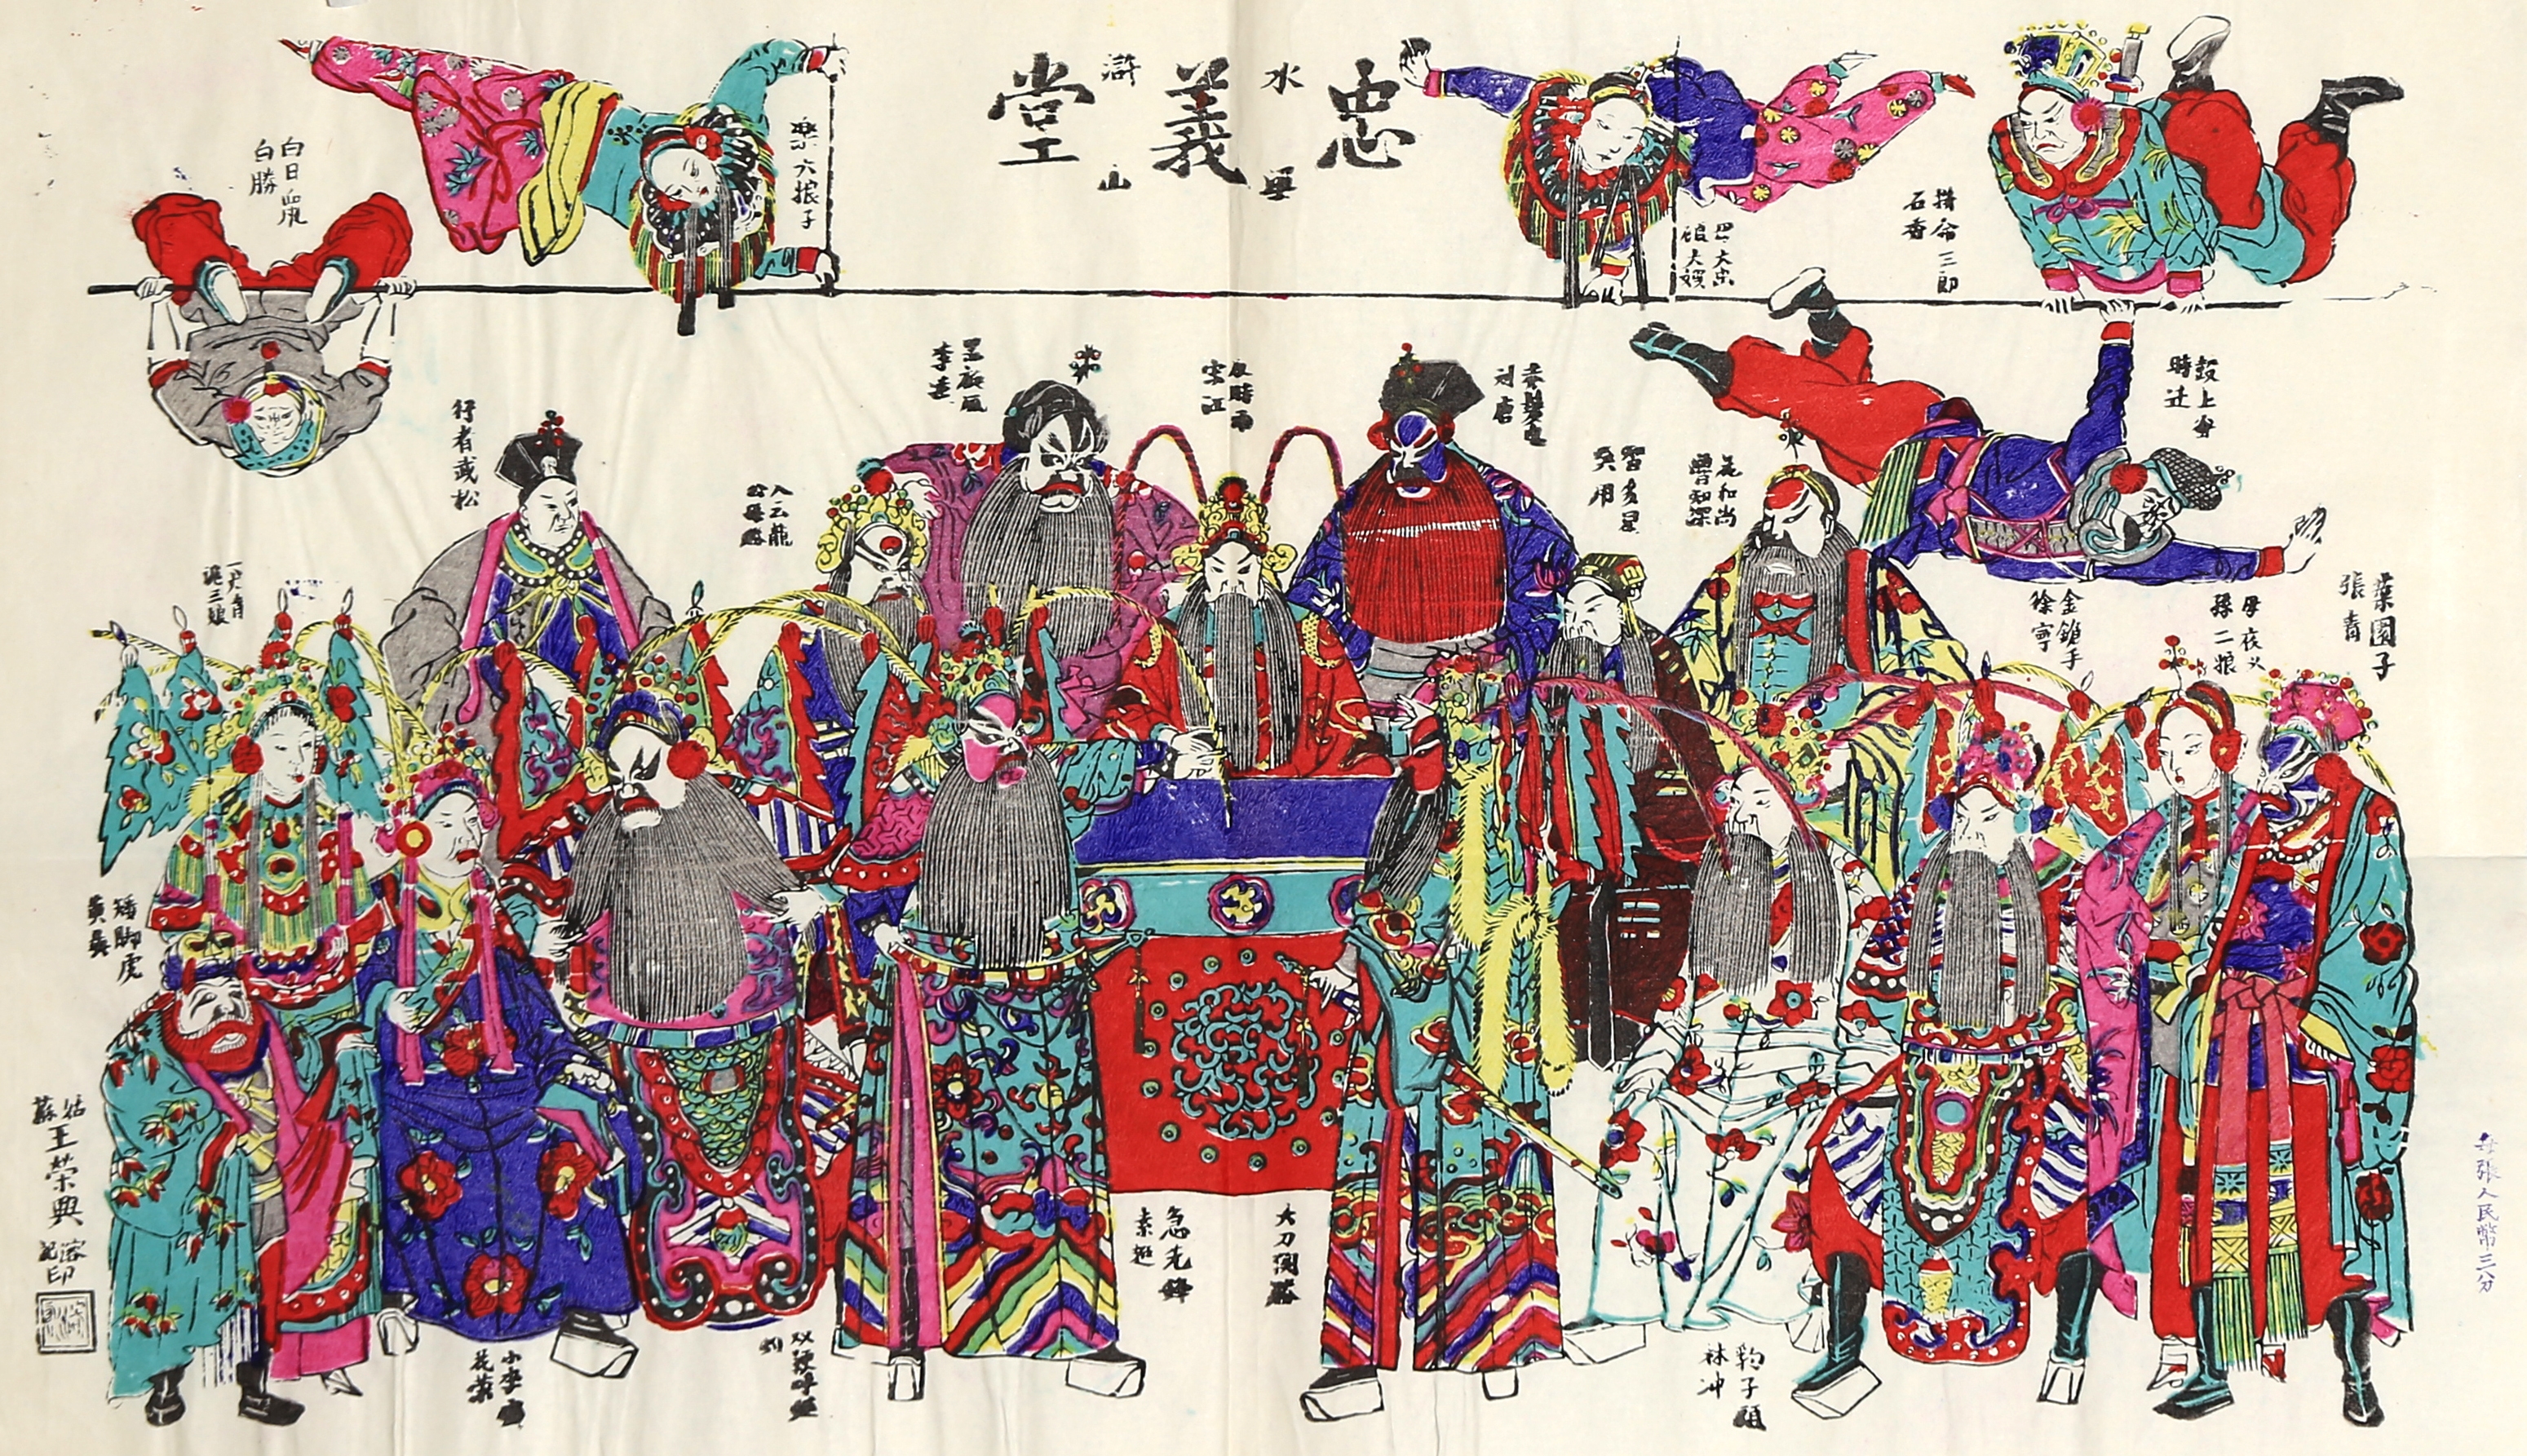 忠義堂
水滸
梁山
拚命三郎
石秀
巴大出
娘大嫂
樂六娘子
白日鼠
白勝
鼓上蚤
時迁
赤髮鬼
刘唐
及時雨
宋江
黑旋風
李逵
行者武松
入云龍
公孫勝
智多星
吳用
花和尚
魯智深
金鎗手
徐寧
母夜叉
孫二娘
菜園子
張青
一丈青
扈三娘
矮脚虎
小李廣
花榮
双鞭呼延
灼
急先鋒
索超
大刀関勝
豹子頭
林冲
姑蘇王榮興
記
印
每張人民幣三分